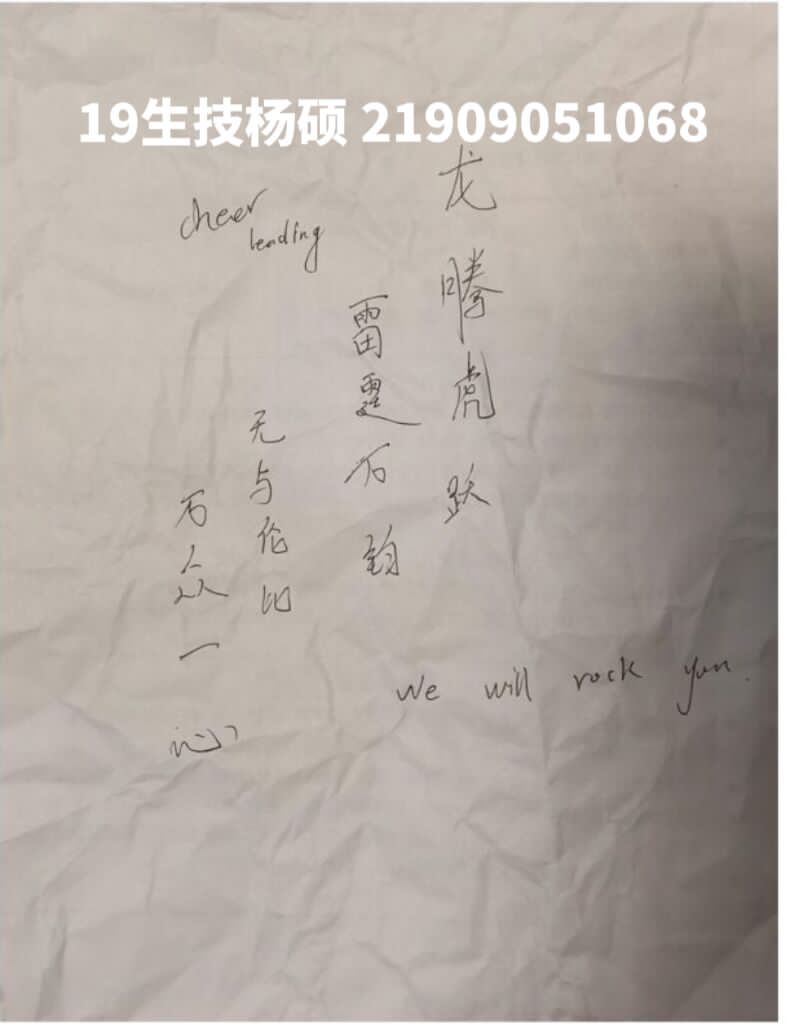 19生技杨硕 21909051068
cheer
leading
龙腾虎跃
雷霆万钧
无与伦比
万众一心
We will rock you.